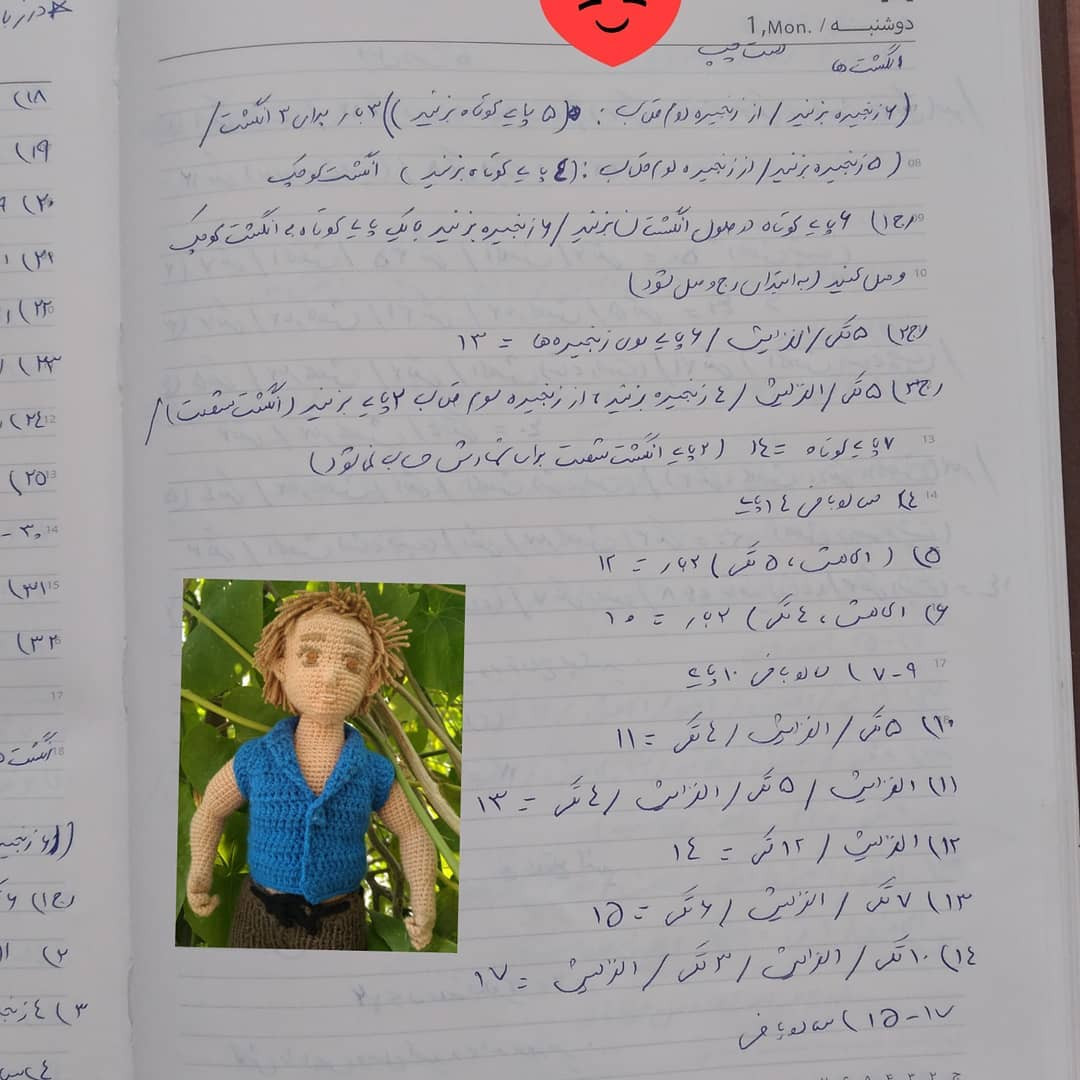 دوشنبــه / .1,Mon
دست چپ
انگشت ها
(۶ زنجیره بزنید / از زنجیره دوم قلاب : (۵ پایه کوتاه بزنید)) ۳ بار برای ۳ انگشت /
(۵ زنجیره بزنید / از زنجیره دوم قلاب : (٤ پایه کوتاه بزنید) انگشت کوچک
رج۱) ۶ پایه کوتاه در طول انگشت ها بزنید / ۶ زنجیره بزنید با یک پایه کوتاه به انگشت کوچک
وصل کنید (به ابتدای رج وصل شود)
رج۲) ۵ تکی / افزایش / ۶ پایه روی زنجیره ها = ۱۳
رج۳) ۵ تکی / افزایش / ٤ زنجیره بزنید ، از زنجیره دوم قلاب ۳ پایه بزنید (انگشت شصت) /
۷ پایه کوتاه = ۱٤ (۳ پایه انگشت شصت برای شمارش حساب نمی شود)
٤) ساده بافی ۱٤ پایه
۵) (کاهش ، ۵ تکی) ۲ بار = ۱۲
۶) (کاهش ، ٤ تکی) ۲ بار = ۱۰
۷-۹) ساده بافی ۱۰ پایه
۱۰) ۵ تکی / افزایش / ٤ تکی = ۱۱
۱۱) افزایش / ۵ تکی / افزایش / ٤ تکی = ۱۳
۱۲) افزایش / ۱۲ تکی = ۱٤
۱۳) ۷ تکی / افزایش / ۶ تکی = ۱۵
۱٤) ۱۰ تکی / افزایش / ۳ تکی / افزایش = ۱۷
۱۵-۱۷) ساده بافی
۱۸)
۱۹)
۲۰)
۲۱)
۲۲)
۲۳)
۲٤)
۲۵)
۳۰ -
۳۱)
۳۲)
انگشت
(۶ زنجیره
رج۱) ۶
۲)
۳) ٤ زنج
٤
08
09
10
12
13
14
15
17
18
13
14
17